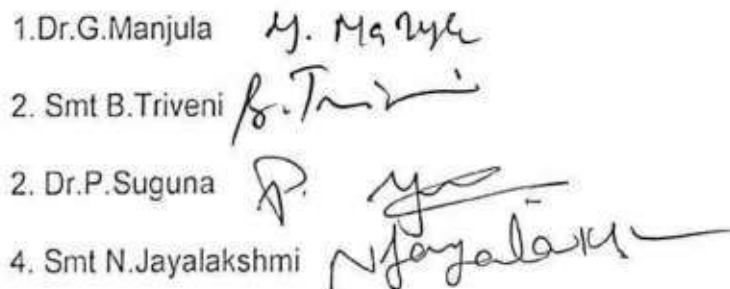 1.Dr.G.Manjula G. Manjula
2. Smt B.Triveni B.Triveni
2. Dr.P.Suguna P.
4. Smt N.Jayalakshmi N Jayalakshmi